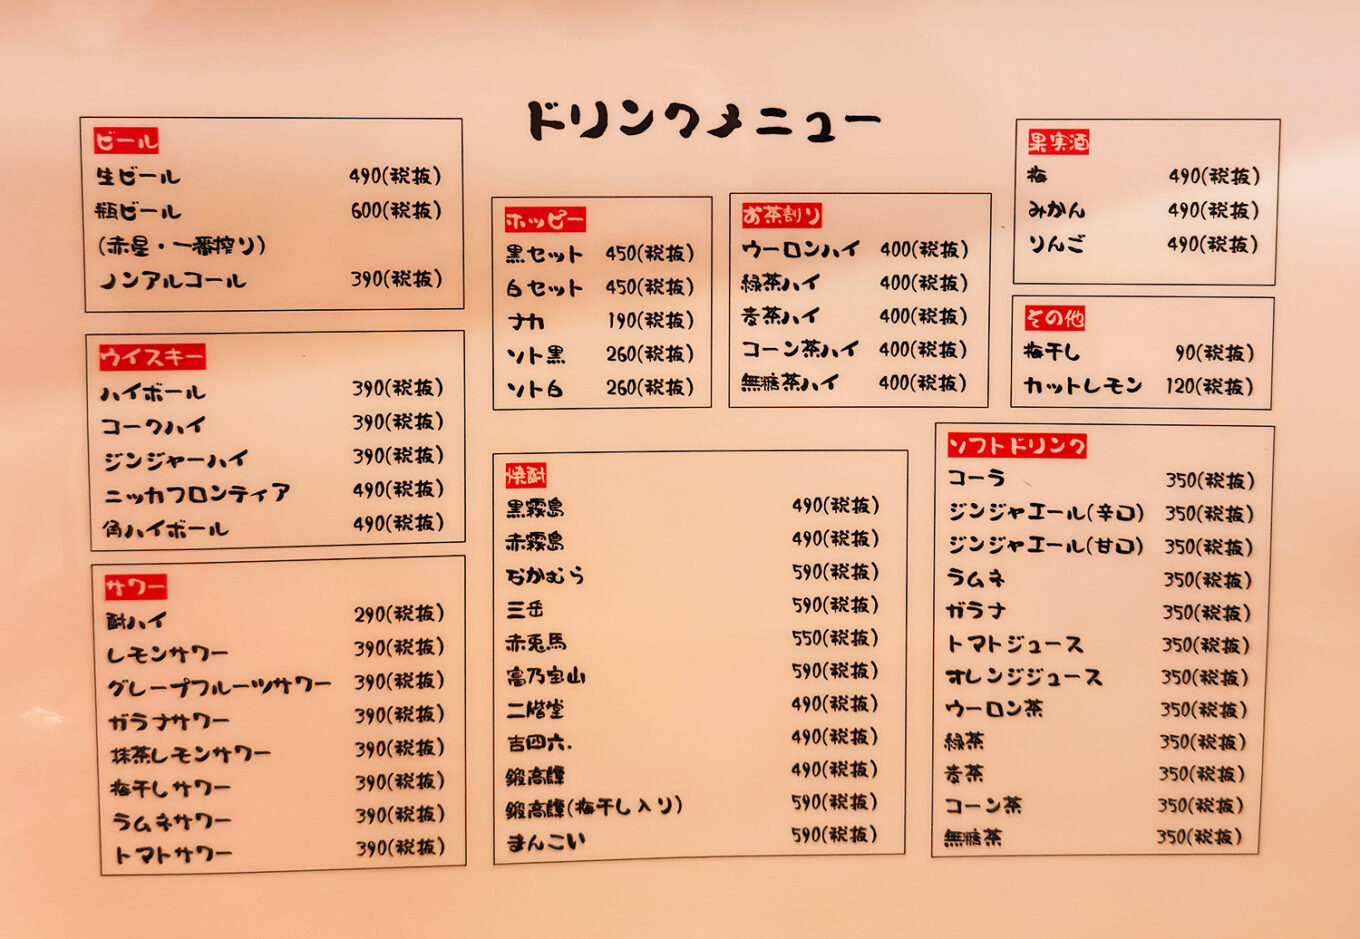 ドリンクメニュー
ビール
生ビール 490(税抜)
瓶ビール 600(税抜)
(赤星・一番搾り)
ノンアルコール 390(税抜)
ウイスキー
ハイボール 390(税抜)
コークハイ 390(税抜)
ジンジャーハイ 390(税抜)
ニッカフロンティア 490(税抜)
角ハイボール 490(税抜)
サワー
酎ハイ 290(税抜)
レモンサワー 390(税抜)
グレープフルーツサワー 390(税抜)
ガラナサワー 390(税抜)
抹茶レモンサワー 390(税抜)
梅干しサワー 390(税抜)
ラムネサワー 390(税抜)
トマトサワー 390(税抜)
ホッピー
黒セット 450(税抜)
白セット 450(税抜)
ナカ 190(税抜)
ソト黒 260(税抜)
ソト白 260(税抜)
お茶割り
ウーロンハイ 400(税抜)
緑茶ハイ 400(税抜)
麦茶ハイ 400(税抜)
コーン茶ハイ 400(税抜)
無糖茶ハイ 400(税抜)
焼酎
黒霧島 490(税抜)
赤霧島 490(税抜)
なかむら 590(税抜)
三岳 590(税抜)
赤兎馬 550(税抜)
富乃宝山 590(税抜)
二階堂 490(税抜)
吉四六. 490(税抜)
鍛高譚 490(税抜)
鍛高譚(梅干し入り) 590(税抜)
まんこい 590(税抜)
果実酒
梅 490(税抜)
みかん 490(税抜)
りんご 490(税抜)
その他
梅干し 90(税抜)
カットレモン 120(税抜)
ソフトドリンク
コーラ 350(税抜)
ジンジャエール(辛口) 350(税抜)
ジンジャエール(甘口) 350(税抜)
ラムネ 350(税抜)
ガラナ 350(税抜)
トマトジュース 350(税抜)
オレンジジュース 350(税抜)
ウーロン茶 350(税抜)
緑茶 350(税抜)
麦茶 350(税抜)
コーン茶 350(税抜)
無糖茶 350(税抜)